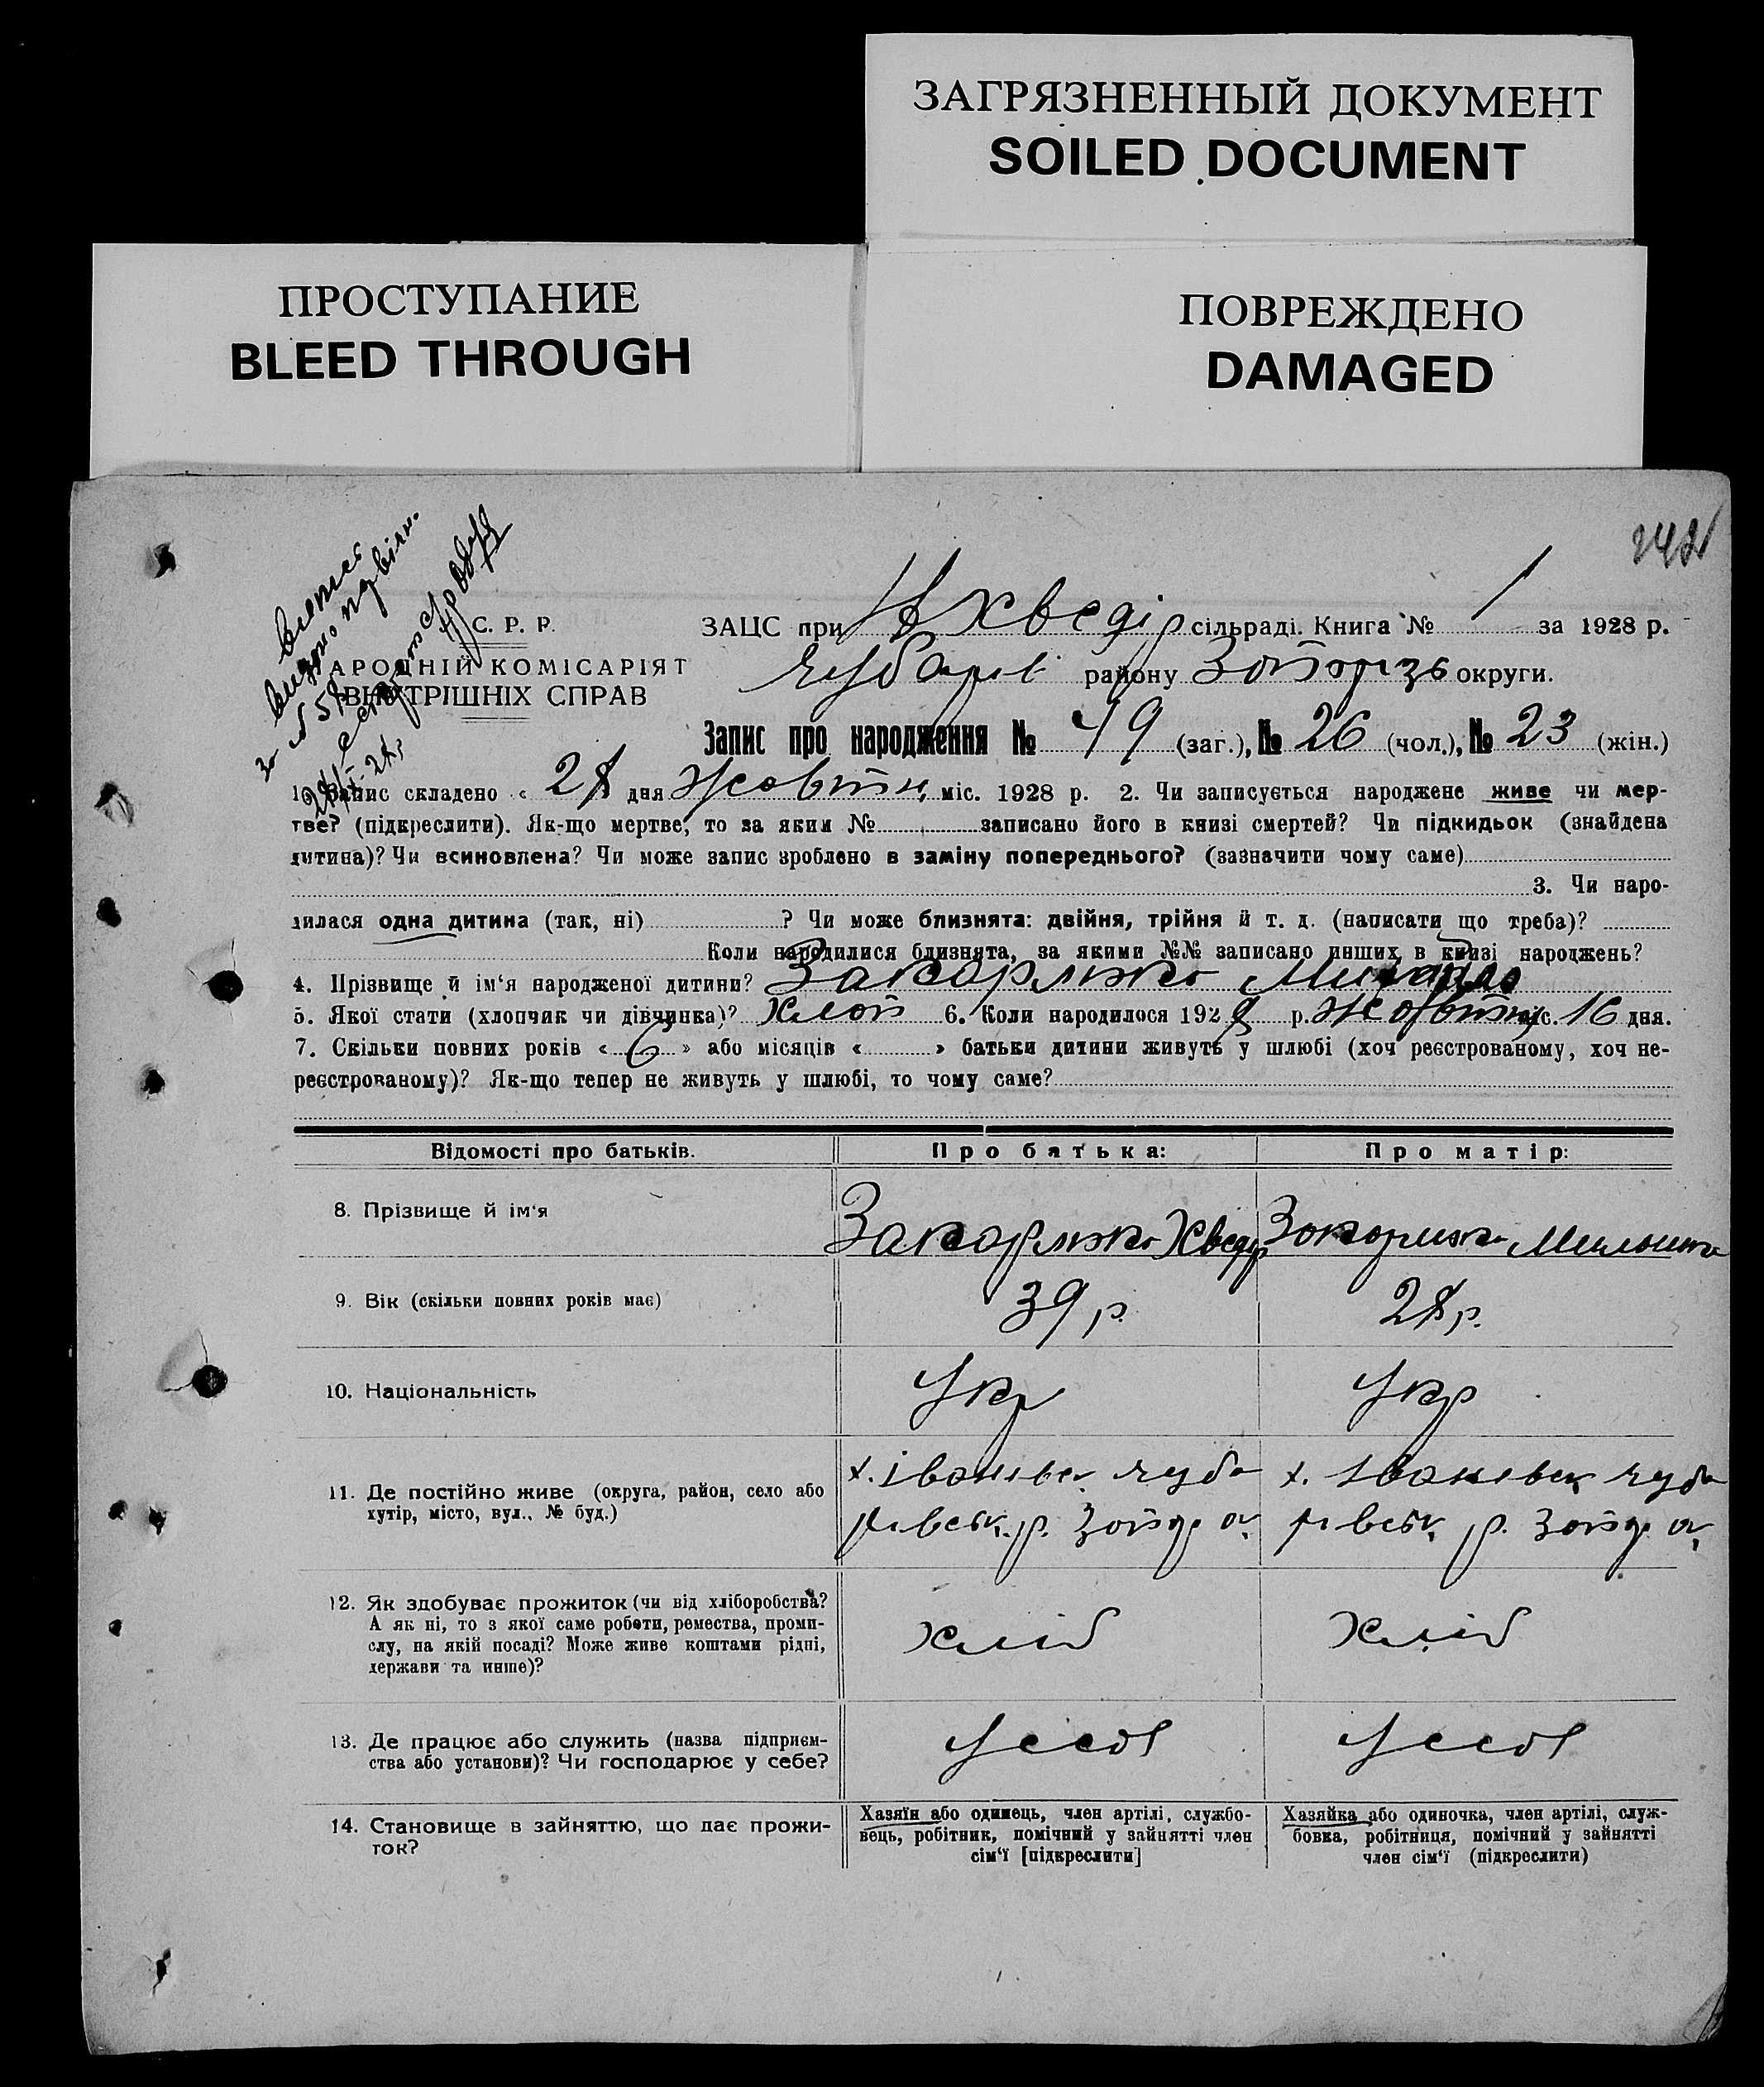 ЗАГРЯЗНЕННЫЙ ДОКУМЕНТ
SOILED DOCUMENT
ПРОСТУПАНИЕ
BLEED THROUGH
ПОВРЕЖДЕНО
DAMAGED
С. Р. Р.
АРОДНІЙ КОМІСАРІЯТ
ВНУТРІШНІХ СПРАВ
ЗАЦС при Н хведір сільраді. Книга № 1 за 1928 р.
району округи.
Запис про народження № 49 (заг.), № 26 (чол.), № 23 (жін.)
1. Запис складено « 28 дня Жовтн міс. 1928 р. 2. Чи записується народжене живе чи мер-
тве? (підкреслити). Як-що мертве, то за яким № записано його в книзі смертей? Чи підкидьок (знайдена
дитина)? Чи всиновлена? Чи може запис зроблено в заміну попереднього? (зазначити чому саме)
3. Чи наро-
дилася одна дитина (так, ні) ? Чи може близнята: двійня, трійня й т. д. (написати що треба)?
Коли народилися близнята, за якими №№ записано инших в книзі народжень?
4. Прізвище й ім‘я народженої дитини? Закорлюко
5. Якої стати (хлопчик чи дівчинка)? Хлоп 6. Коли народилося 1928 р. Жовтня міс. 16 дня.
7. Скільки повних років « 6 » або місяців « » батьки дитини живуть у шлюбі (хоч реєстрованому, хоч не-
реєстрованому)? Як-що тепер не живуть у шлюбі, то чому саме?
Відомості про батьків. Про батька: Про матір:
8. Прізвище й ім‘я Хведір
9. Вік (скільки повних років має) 39 р. 28 р.
10. Національність Укр Укр
11. Де постійно живе (округа, район, село або х. Іванівск Чуба х. Іванівск Чуба
хутір, місто, вул., № буд.) рівськ. р. Запор. ок рівськ р. Запор. ок
12. Як здобуває прожиток (чи від хліборобства?
А як ні, то з якої саме роботи, ремества, проми-
слу, на якій посаді? Може живе коштами рідні, хліб хліб
держави та инше)?
13. Де працює або служить (назва підприєм- У себе У себе
ства або установи)? Чи господарює у себе?
14. Становище в зайняттю, що дає прожи-
ток?
Хазяїн або одинець, член артілі, службо-
вець, робітник, помічний у зайнятті член
сім‘ї [підкреслити]
Хазяйка або одиночка, член артілі, служ-
бовка, робітниця, помічний у зайнятті
член сім‘ї (підкреслити)